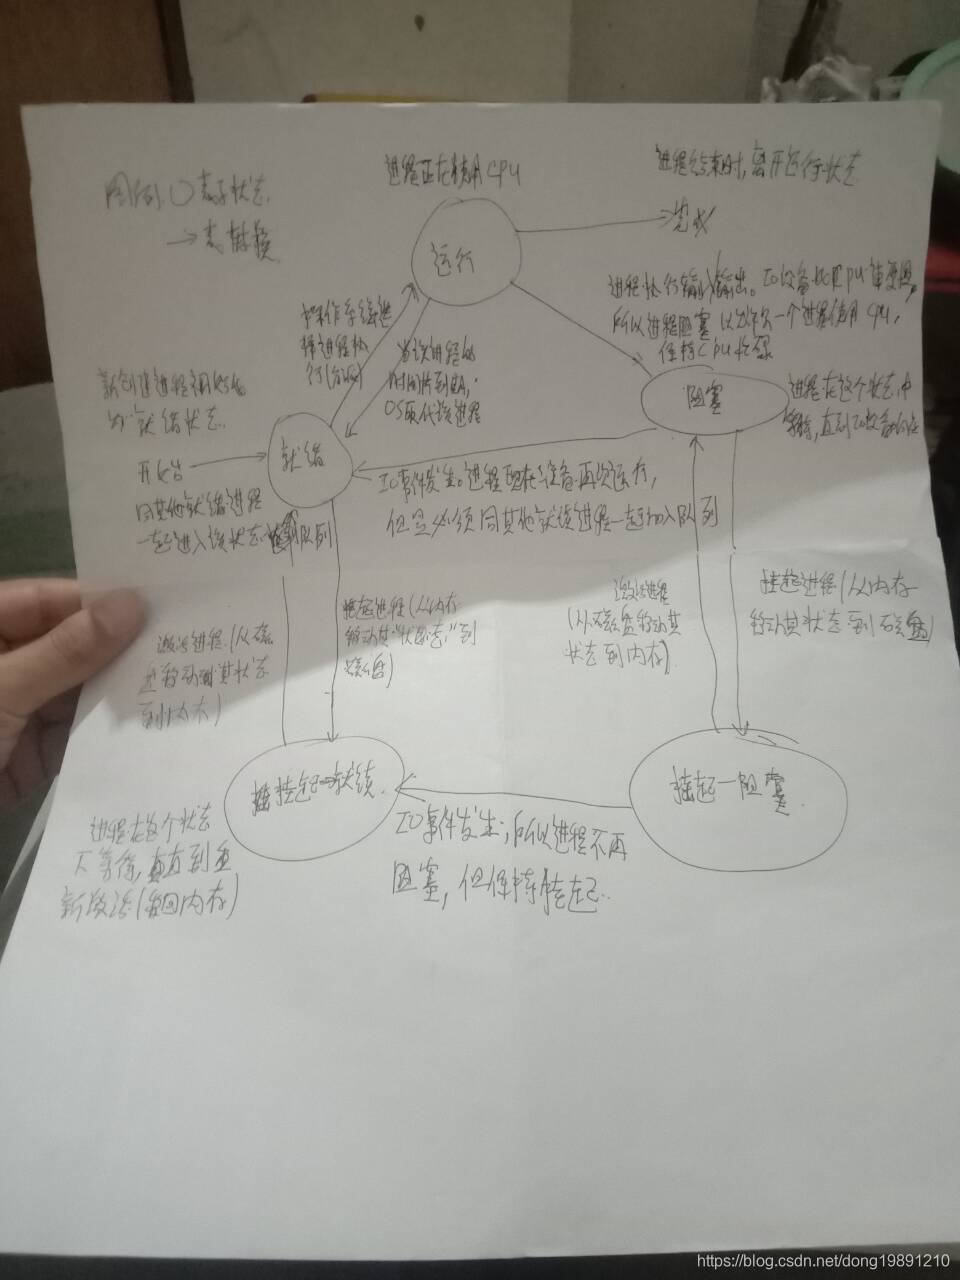 进程正在使用CPU
进程结束时,离开运行状态
图例:○表示状态.
→表转换
运行
→完成
进程执行输入输出。IO设备比CPU速度慢,
所以进程阻塞 以允许另一个进程使用CPU,
保持CPU忙碌
操作系统选
择进程执
行(分派)
当该进程的
时间片到时,
OS取代该进程
新创建进程初始的
为"就绪状态.
阻塞
进程在这个状态中
等待,直到IO设备
就绪
开始
IO事件发生。进程现在准备再次运行,
但是必须同其他就绪进程一起加入队列
同其他就绪进程
一起进入该状态 队列
激活进程(从磁
盘移动其状态
到内存)
挂起进程(从内存
移动其"状态"到
磁盘)
激活进程
(从磁盘移动其
状态到内存)
挂起进程(从内存
移动其状态到磁盘)
挂起—就绪.
挂起—阻塞.
进程在这个状态
下等待,直到重
新激活(返回内存)
IO事件发生;所以进程不再
阻塞,但保持挂起.
https://blog.csdn.net/dong19891210